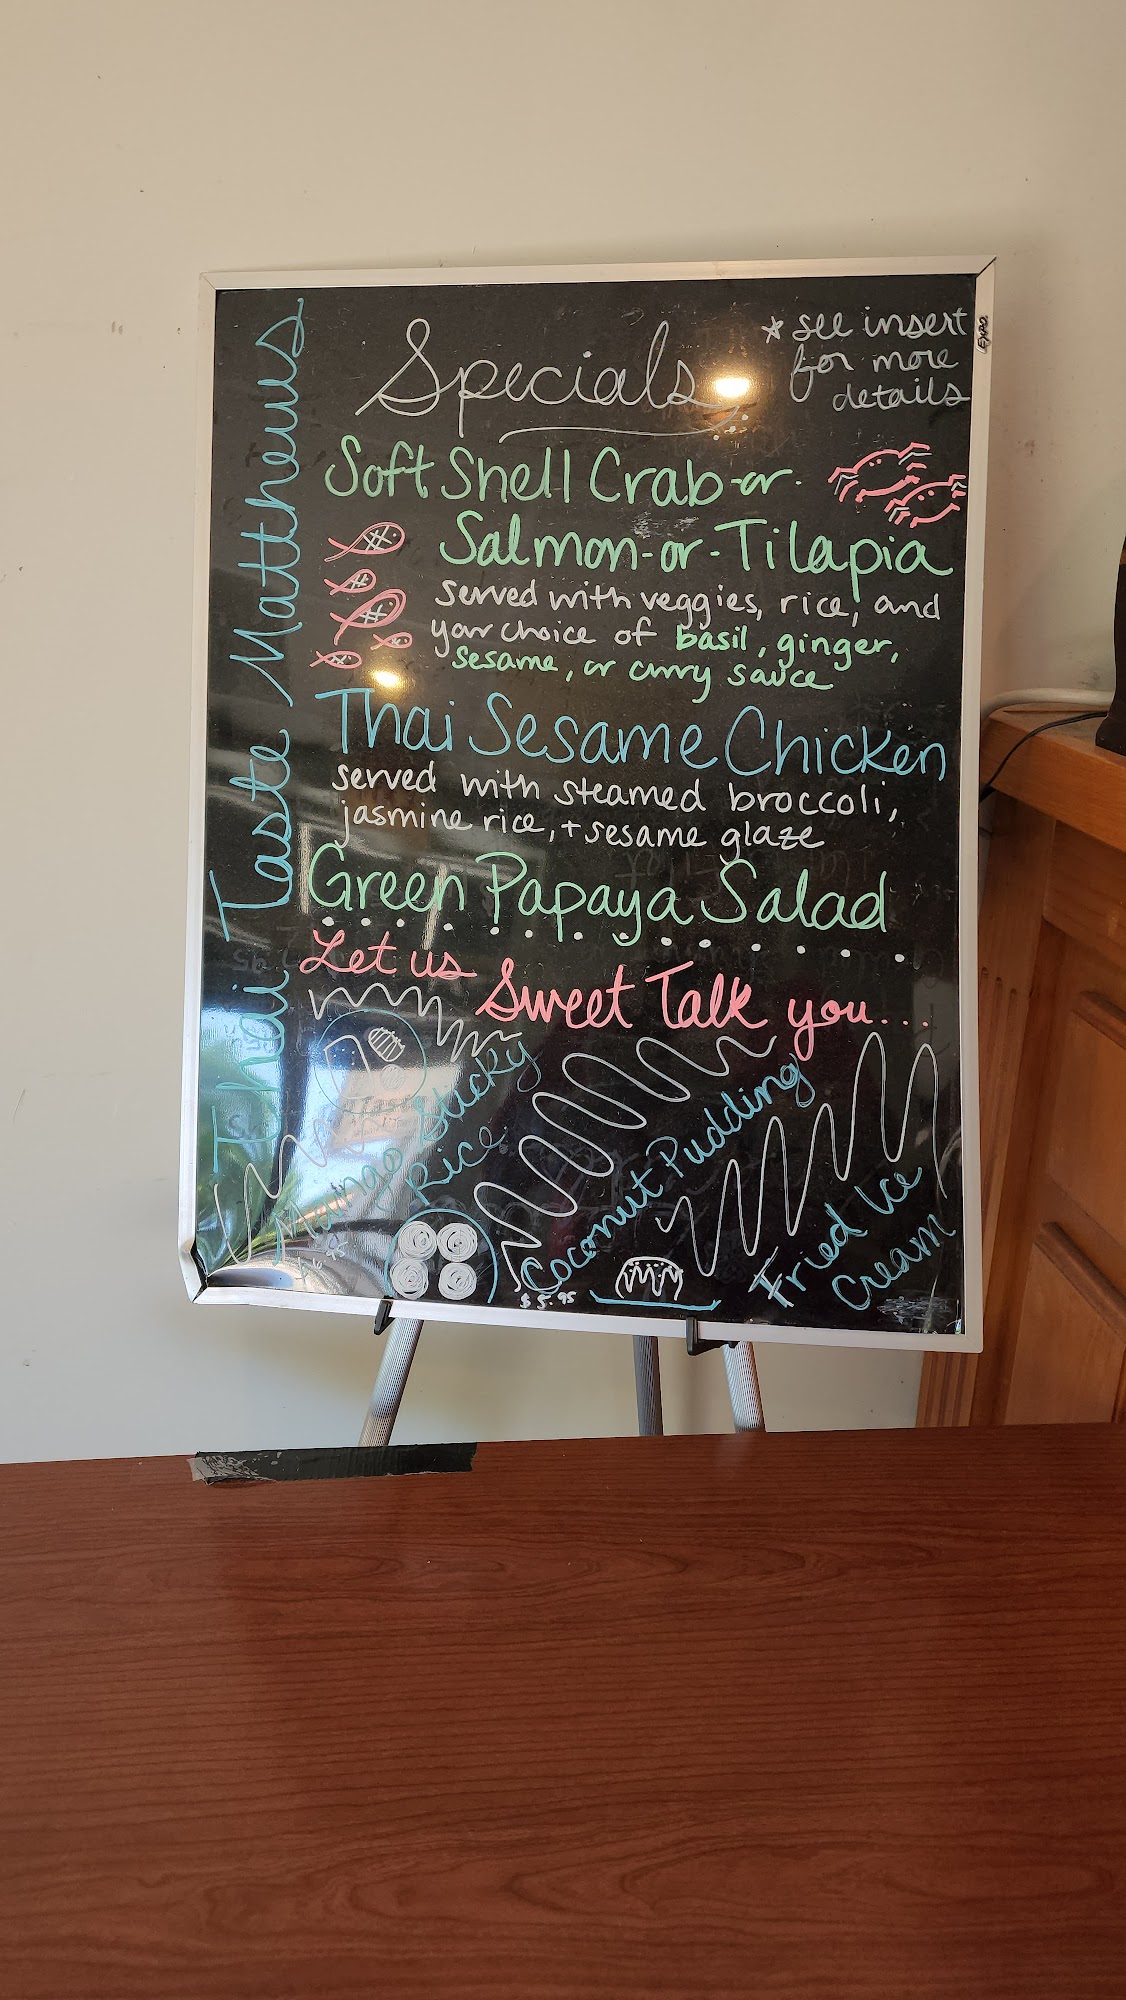 Thai Taste Matthews
Specials
* see insert
for more
details
Soft Shell Crab -or-
Salmon -or- Tilapia
served with veggies, rice, and
your choice of basil, ginger,
sesame, or curry sauce
Thai Sesame Chicken
served with steamed broccoli,
jasmine rice, + sesame glaze
Green Papaya Salad
Let us Sweet Talk you...
Mango Sticky
Rice
Coconut Pudding
$5.95
Fried Ice
Cream